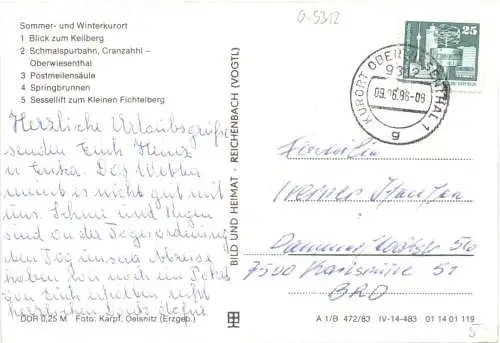 O-5312
Sommer- und Winterkurort
1 Blick zum Keilberg
2 Schmalspurbahn, Cranzahl –
Oberwiesenthal
3 Postmeilensäule
4 Springbrunnen
5 Sessellift zum Kleinen Fichtelberg
Herzliche Urlaubsgrüße
senden Euch Heinz
u Erika. Das Wetter
meint es nicht gut mit
uns. Schnee und Regen
sind an der Tagesordnung
Tag unsere Abreise
haben wir noch ein Paket
von Euch erhalten recht
herzlichen Dank dafür.
DDR 0,25 M Foto: Karpf, Oelsnitz (Erzgeb.)
BILD UND HEIMAT · REICHENBACH (VOGTL)
25
KURORT OBERWIESENTHAL 1
9312
09.06.86-09
g
Familie
Werner
7500 Karlsruhe 51
BRD
A 1/B 472/83 IV-14-483 01 14 01 119
5